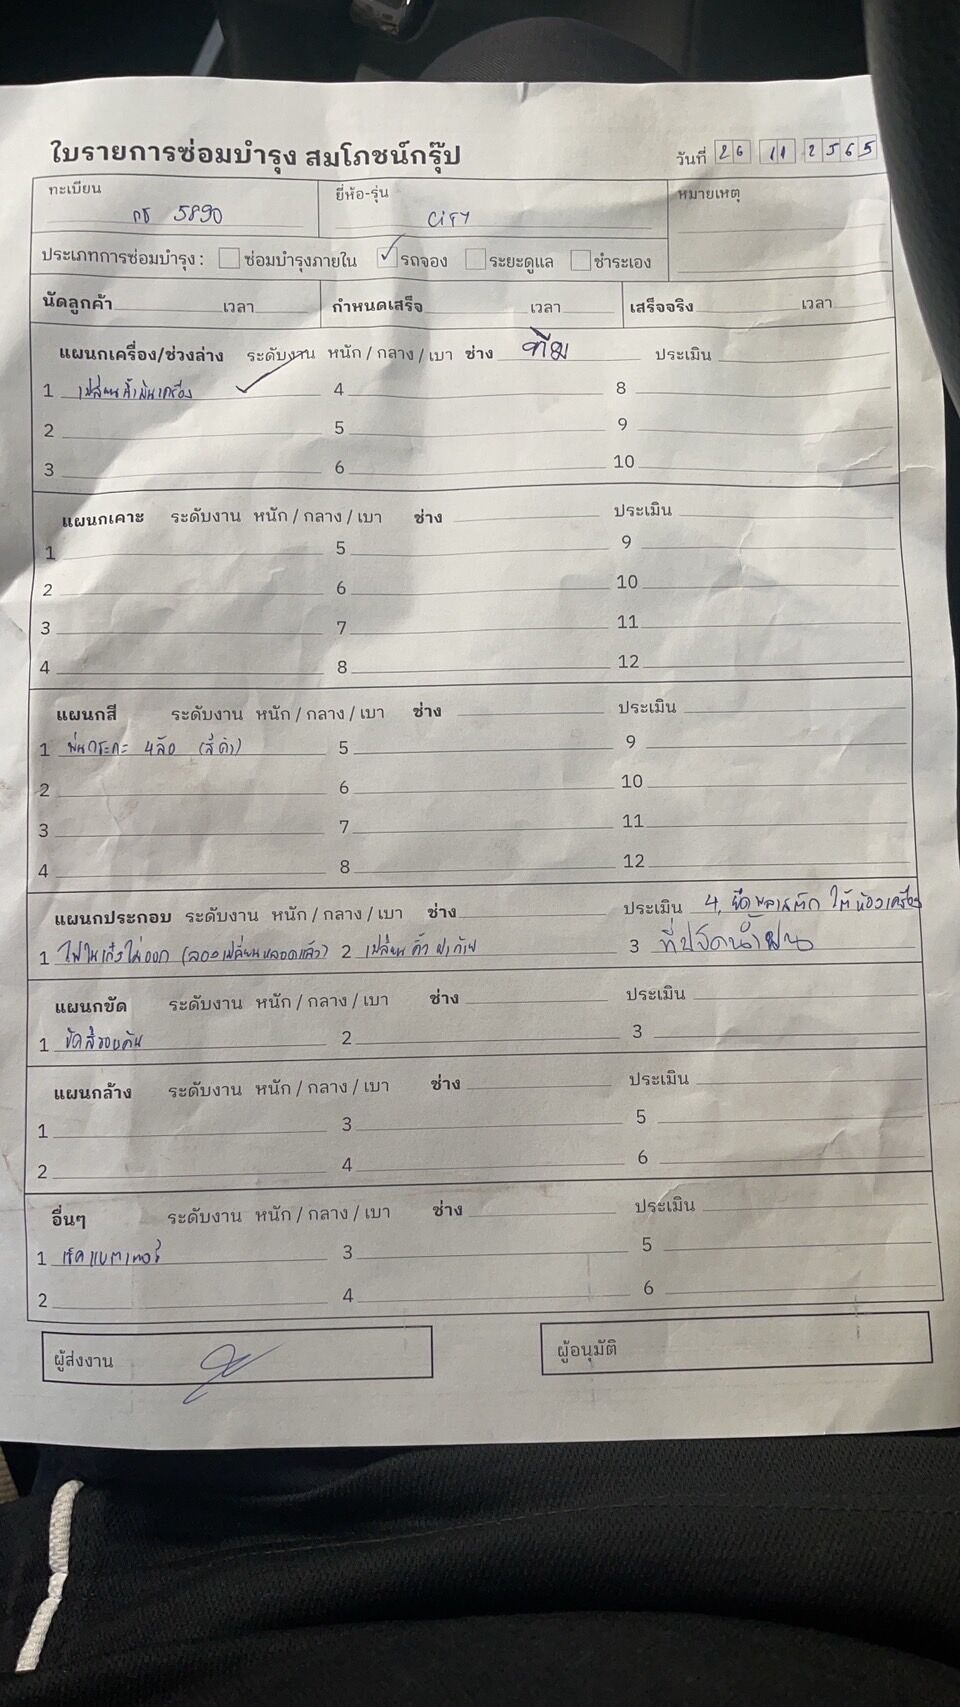 ใบรายการซ่อมบำรุง สมโภชน์กรุ๊ป
วันที่ 26 11 2565
ทะเบียน ยี่ห้อ-รุ่น หมายเหตุ
5890 CITY
ประเภทการซ่อมบำรุง : ซ่อมบำรุงภายใน ✓ รถจอง ระยะดูแล ชำระเอง
นัดลูกค้า เวลา กำหนดเสร็จ เวลา เสร็จจริง เวลา
แผนกเครื่อง/ช่วงล่าง ระดับงาน หนัก / กลาง / เบา ช่าง ทีม ประเมิน
1 เปลี่ยนน้ำมันเครื่อง ✓ 4 8
2 5 9
3 6 10
แผนกเคาะ ระดับงาน หนัก / กลาง / เบา ช่าง ประเมิน
1 5 9
2 6 10
3 7 11
4 8 12
แผนกสี ระดับงาน หนัก / กลาง / เบา ช่าง ประเมิน
1 พ่นกระทะ 4ล้อ (สีดำ) 5 9
2 6 10
3 7 11
4 8 12
แผนกประกอบ ระดับงาน หนัก / กลาง / เบา ช่าง ประเมิน 4. ยึดพลาสติก ใต้ห้องเครื่อง
1 ไฟในเก๋งไม่ออก (ลองเปลี่ยนหลอดแล้ว) 2 เปลี่ยน คิ้ว ฝาท้าย 3 ที่ปัดน้ำฝน
แผนกขัด ระดับงาน หนัก / กลาง / เบา ช่าง ประเมิน
1 ขัดสีรอบคัน 2 3
แผนกล้าง ระดับงาน หนัก / กลาง / เบา ช่าง ประเมิน
1 3 5
2 4 6
อื่นๆ ระดับงาน หนัก / กลาง / เบา ช่าง ประเมิน
1 เช็คแบตเตอรี่ 3 5
2 4 6
ผู้ส่งงาน ผู้อนุมัติ